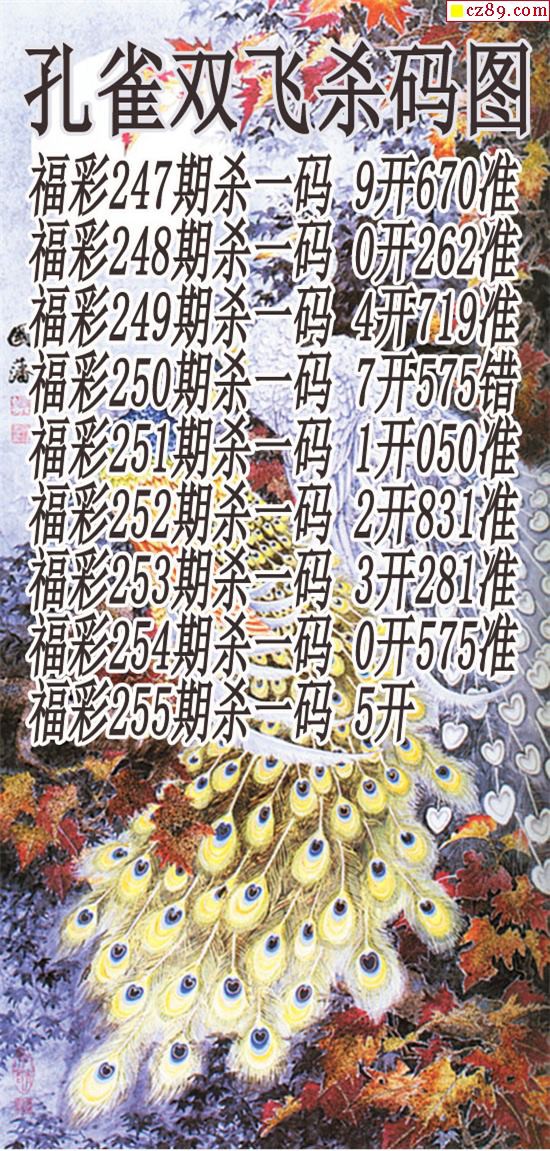 cz89.com
孔雀双飞杀码图
福彩247期杀一码 9开670准
福彩248期杀一码 0开262准
福彩249期杀一码 4开719准
福彩250期杀一码 7开575错
福彩251期杀一码 1开050准
福彩252期杀一码 2开831准
福彩253期杀一码 3开281准
福彩254期杀一码 0开575准
福彩255期杀一码 5开